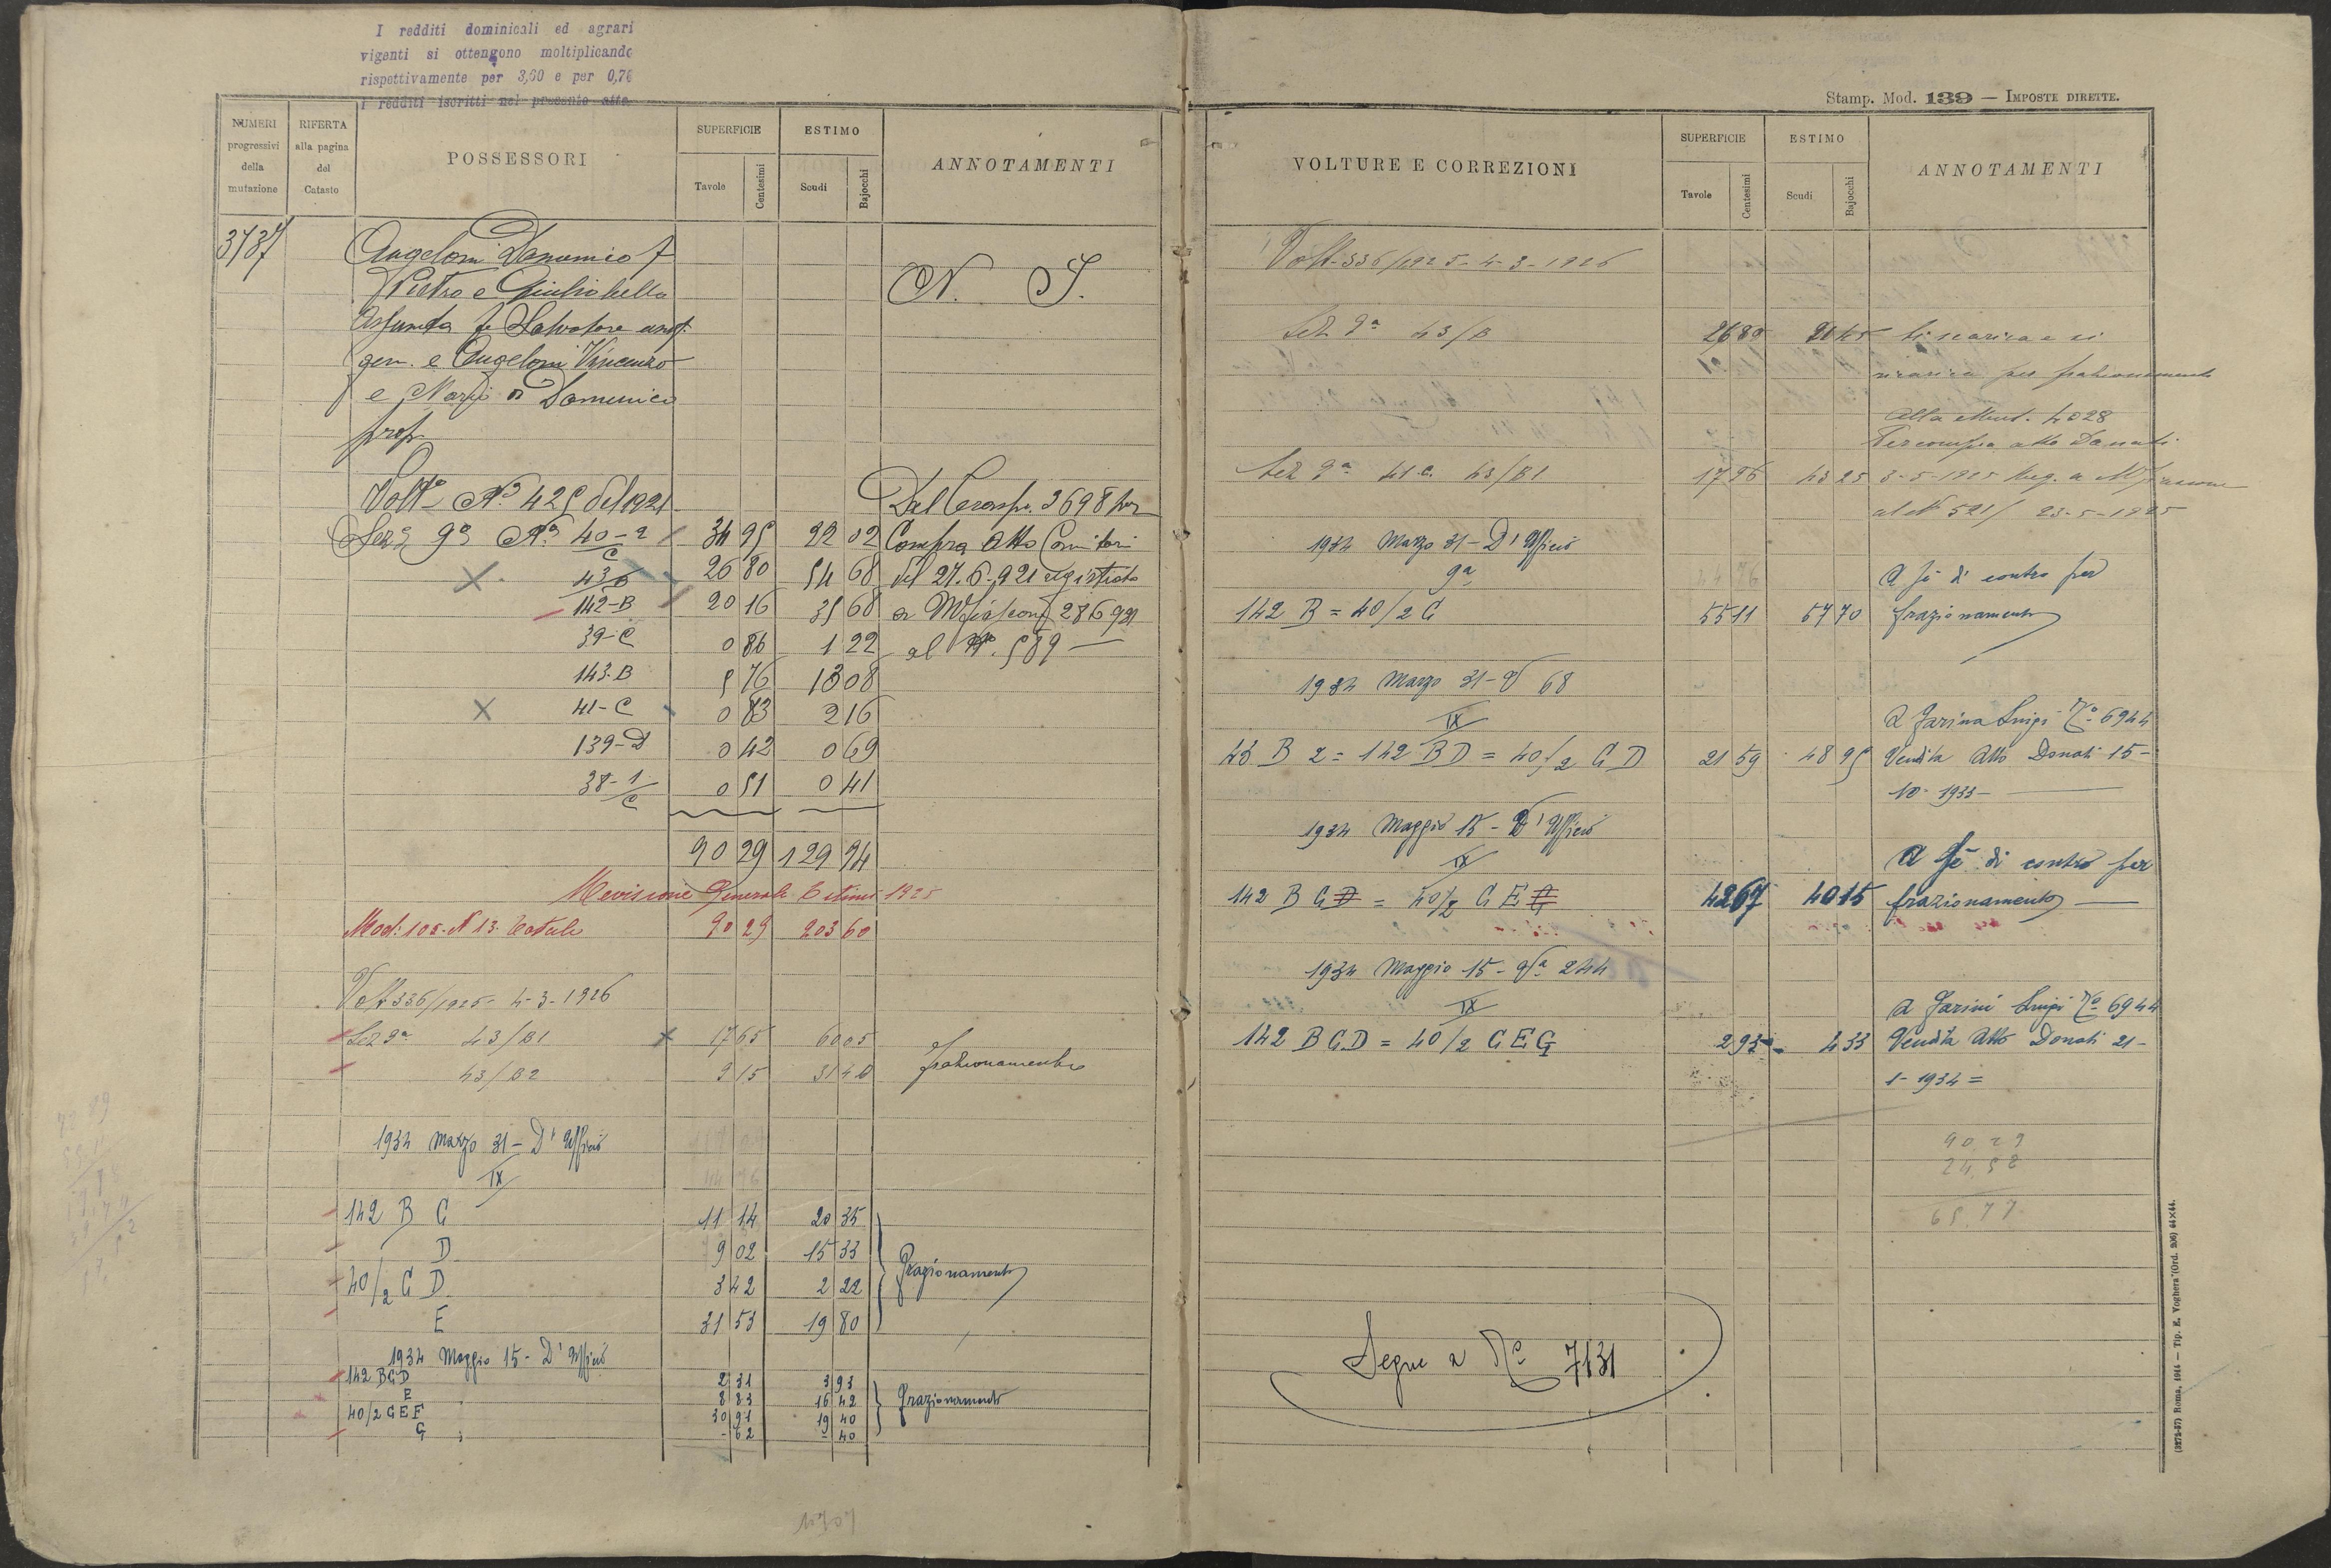 I redditi dominicali ed agrari
vigenti si ottengono moltiplicando
rispettivamente per 3,60 e per 0,76
I redditi iscritti nel presente atto
NUMERI progressivi della mutazione
RIFERTA alla pagina del Catasto
POSSESSORI
SUPERFICIE Tavole Centesimi
ESTIMO Scudi Bajocchi
ANNOTAMENTI
3737
Angeloni Domenico f
Pietro e Giuliobello
Assunta fu Salvatore
gen. e Angeloni Vincenzo
e Nazz di Domenico
prop
N. S.
Volt. N° 425 del 1921
Dal Consp. 3698 per
Sez. 9a N° 40-2/C 34 95 22 02 Compra Atto Comitori
43/B 26 80 54 68 del 27.6.921 registrato
142-B 20 16 35 68 a Mfiascone 28 6 921
39-C 0 86 1 22 al N. 589 —
143-B 5 76 13 08
41-C 0 83 2 16
139-D 0 42 0 69
38-1/C 0 51 0 41
90 29 129 94
Revisione Generale Estimi 1925
Mod: 108-N 13. Totale 90 29 203 60
Volt 336/1925- 4-3-1926
Sez 9a 43/B1 17 65 60 05
43/B2 9 15 31 40 frazionamento
1934 Marzo 31 - D'Ufficio
IX
142 B C 11 14 20 35
D 9 02 15 33
40/2 C D 3 42 2 22 frazionamento
E 31 53 19 80
1934 Maggio 15 - D'Ufficio
142 BCD 2 31 3 93
E 8 83 16 42 frazionamento
40/2 C E F 30 91 19 40
G - 62 - 40
Stamp. Mod. 139 — IMPOSTE DIRETTE.
VOLTURE E CORREZIONI
SUPERFICIE Tavole Centesimi
ESTIMO Scudi Bajocchi
ANNOTAMENTI
Volt-336/1925-4-3-1926
Sez 9a 43/B 26 80 Si scarica e si
ricarica per frazionamento
Alla Mut. 4028
Per compra atto Donati
Sez 9a 41 C. 43/B1 3-5-1925 Reg. a Mfiascone
al N 521/ 23-5-1925
1934 Marzo 31 - D'Ufficio
9a A fº di contro per
142 B = 40/2 C 55 11 57 70 frazionamento
1934 Marzo 31 - 68
IX A Farina Luigi Nº 6944
43 B 2 = 142 BD = 40/2 C D 21 59 48 95 Vendita Atto Donati 15-
10-1933-
1934 Maggio 15 - D'Ufficio
IX A fº di contro per
142 B C = 40/2 C E 42 67 40 15 frazionamento —
1934 Maggio 15 - 244
IX A Farini Luigi Nº 6944
142 B C D = 40/2 C E G 2 93 4 33 Vendita Atto Donati 21-
1-1934 =
90 29
24,52
65.77
Segue a Nº 7131
(3272-57) Roma, 1914 — Tip. E. Voghera (Ord. 206) 44×44.